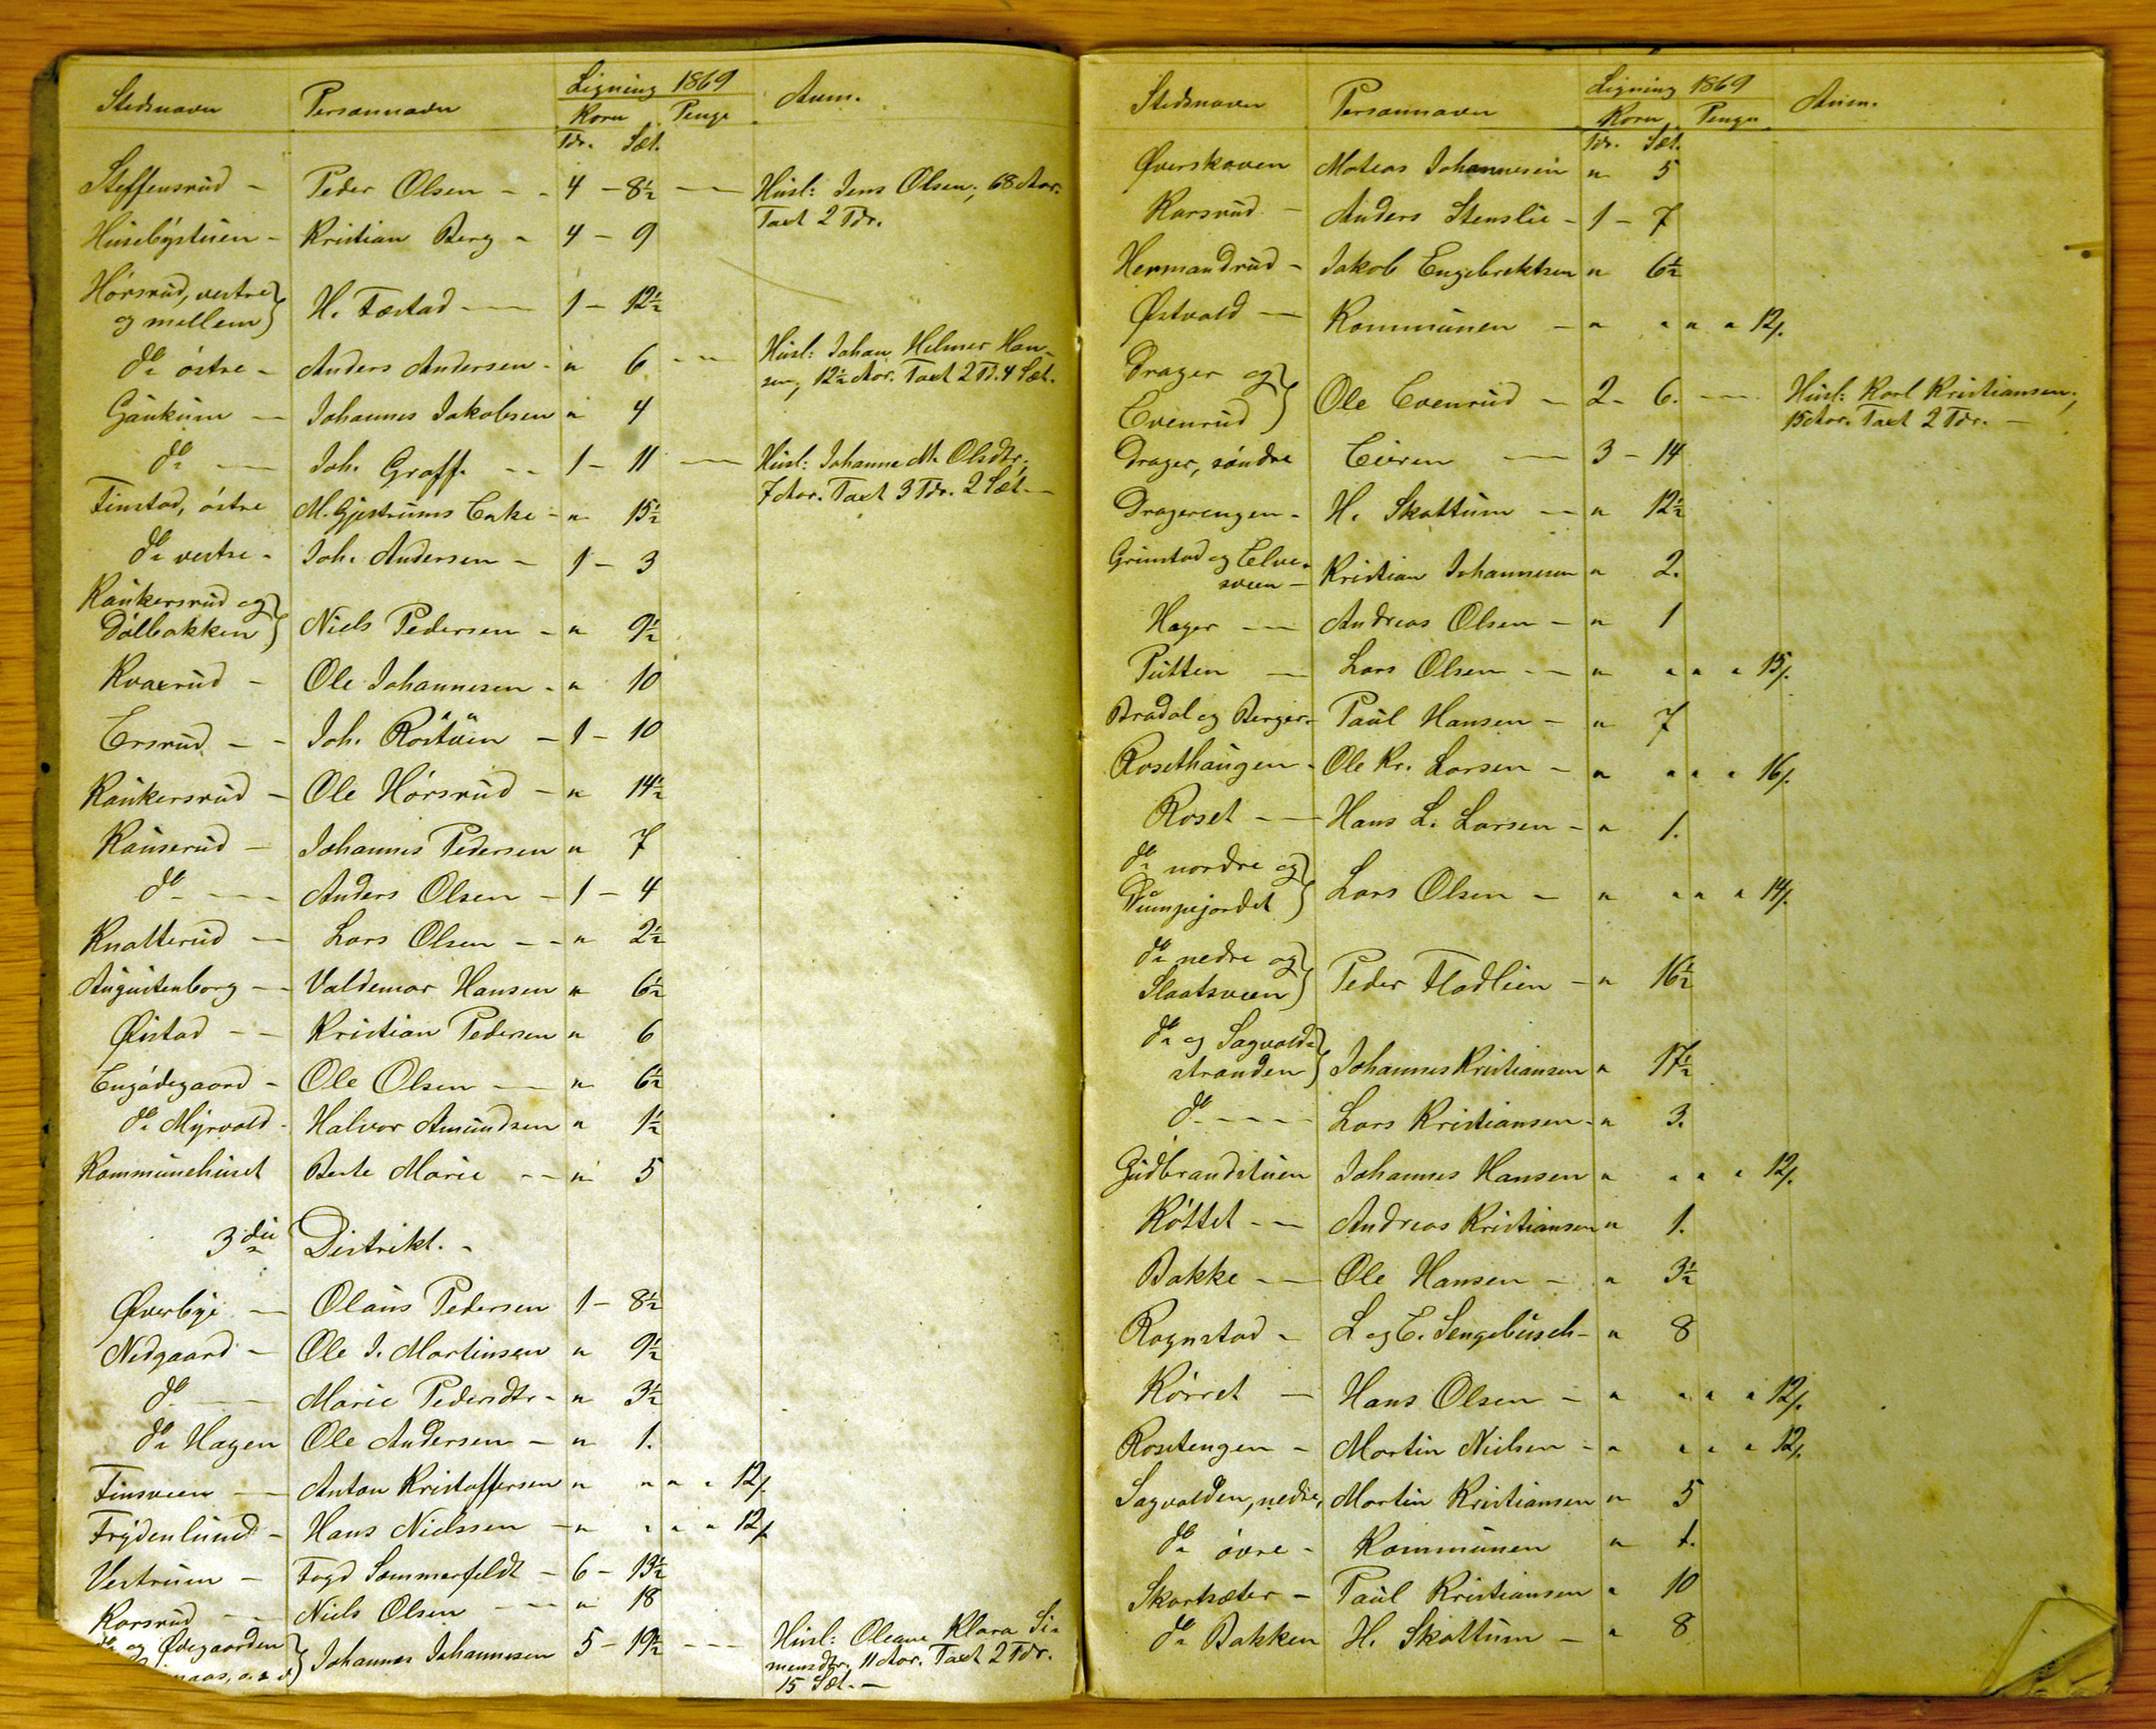 Stedsnavn Personnavn Ligning 1869 Anm.
Korn Penge
Tdr. Sæt.
Steffensrud - Peder Olsen - - 4 - 8½ — Husl: Jens Olsen, 68 Aar.
Taxt 2 Tdr.
Husebystuen - Kristian Berg - 4 - 9
Hörsrud, vestre
og mellem } H. Fæstad — 1 - 12½
do östre - Anders Andersen - " 6 - - Husl: Johan Helmer Han-
sen, 12½ Aar. Taxt 2 Td. 4 Sæt.
Gaukum — Johannes Jakobsen " 4
do — Joh. Graff. - - 1 - 11 — Husl: Johanne M. Olsdtr.
7 Aar. Taxt 3 Tdr. 2 Sæt. —
Finstad, östre M. Gjestrums Enke - " 15½
do vestre - Joh. Andersen - 1 - 3
Raukersrud og
Dölbakken } Niels Pedersen - " 9½
Kværrud - Ole Johannesen - " 10
Ersrud - - Joh. Röstuen - 1 - 10
Raukersrud - Ole Hörsrud - " 14½
Rauserud - Johannes Pedersen " 7
do - - - Anders Olsen - 1 - 4
Knatterud — Lars Olsen - - " 2½
Augustenborg - - Valdemar Hansen " 6½
Øistad - - Kristian Pedersen " 6
Engödegaard - Ole Olsen — " 6½
do Myrvold - Halvor Amundsen " 1½
Kommunehuset Berte Marie - - " 5
3die Distrikt. -
Øverbye — Olaus Pedersen 1 - 8½
Nedgaard - Ole J. Martinsen " 9½
do — Marie Pedersdtr - " 3½
do Hagen Ole Andersen - " 1.
Finsveen — Anton Kristoffersen " " " " 12/.
Frydenlund - Hans Nielssen - " " " " 12/.
Vestrum - Fogd Sommerfeldt - 6 - 13½
Korsrud - - Niels Olsen - - - " 18
do og Ødegaarden
aas, o. s. v. } Johannes Johannesen 5 - 19½ - - - Husl: Oleane Klara Si-
mensdtr. 11 Aar. Taxt 2 Tdr.
15 Sæt. —
Stedsnavn Personnavn Ligning 1869 Anm.
Korn Penge
Tdr. Sæt.
Øverskoven Mateas Johannesen " 5
Karsrud - Anders Stenslie - 1 - 7
Hermandrud - Jakob Engebrektsen " 6½
Østvold — Kommunen - " " " " 12/.
Drager og
Evenrud } Ole Evenrud - 2 - 6. - - - Husl: Karl Kristiansen,
15 Aar. Taxt 2 Tdr. —
Drager, söndre Eieren — 3 - 14
Dragerengen - H. Skattum — " 12½
Grimstad og Elve-
sveen - Kristian Johannesen " 2.
Hager — Andreas Olsen - " 1
Putten — Lars Olsen - - " " " " 15/.
Bradal og Berger - Paul Hansen - " 7
Rosethaugen - Ole Kr. Larsen - " " " " 16/.
Roset - — Hans L. Larsen - " 1.
do nordre og
Pumpejordet } Lars Olsen - " " " " 14/.
do nedre og
Slaatsveen } Peder Fladlien - " 16½
do og Sagvold-
stranden } Johannes Kristiansen " 17½
do - - - - Lars Kristiansen - " 3.
Gudbrandstuen Johannes Hansen " " " " 12/.
Köttet - - Andreas Kristiansen " 1.
Bakke - — Ole Hansen - " 3½
Rognstad - L og E. Sengebusch - " 8
Körret - Hans Olsen - " " " " 12/.
Rosetengen - Martin Nielsen - " " " " 12/.
Sagvolden, nedre, Martin Kristiansen " 5
do övre - Kommunen " 1.
Skartsæter - Paul Kristiansen " 10
do Bakken H. Skattum - " 8